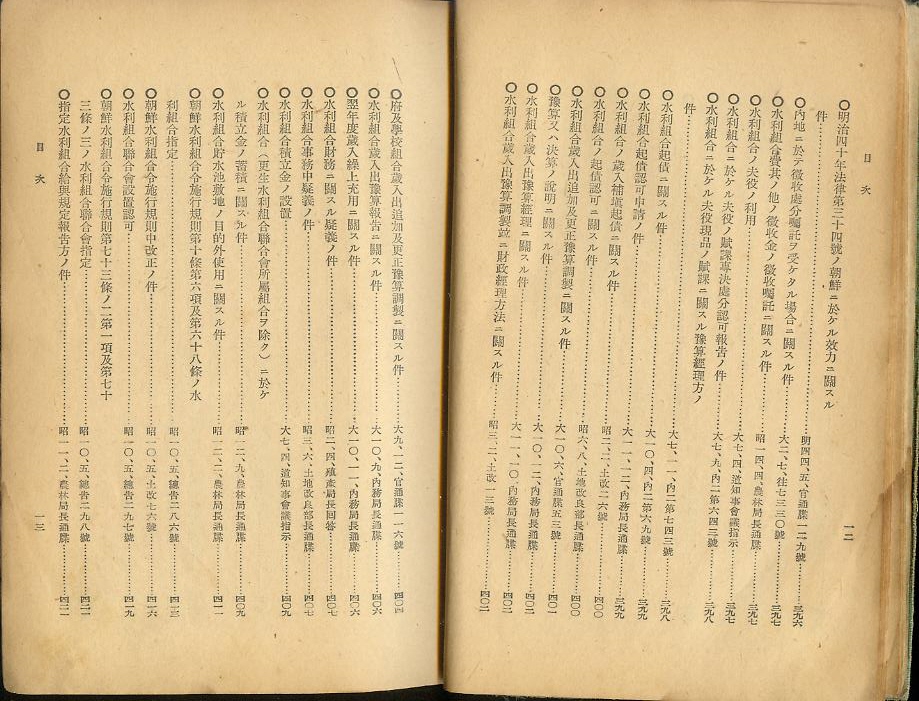 目次
一二
〇明治四十年法律第三十四號ノ朝鮮ニ於ケル效力ニ關スル
件……明四四、五、官通牒一二九號……三九六
〇內地ニ於テ徵收處分囑託ヲ受ケタル場合ニ關スル件……大二、七、往七三三〇號……三九七
〇水利組合費其ノ他ノ徵收金ノ徵收囑託ニ關スル件……昭一四、四、農林局長通牒……三九七
〇水利組合ノ夫役ノ利用……大七、四、道知事會議指示……三九七
〇水利組合ニ於ケル夫役ノ賦課專決處分認可報告ノ件
〇水利組合ニ於ケル夫役現品ノ賦課ニ關スル豫算經理方ノ
件……大七、九、內二第六四二號……三九八
〇水利組合起債ニ關スル件……大七、一一、內二第七四三號……三九八
〇水利組合起債認可申請ノ件……大一〇、四、內二第六九號……三九九
〇水利組合ノ歲入補塡起債ニ關スル件……大一一、一二、內務局長通牒……三九九
〇水利組合ノ起債認可ニ關スル件……昭二、二、土改二六號……四〇〇
〇水利組合歲入出追加及更正豫算調製ニ關スル件……昭六、八、土地改良部長通牒……四〇〇
豫算又ハ決算ノ說明ニ關スル件……大一〇、六、官通牒五三號……四〇一
〇水利組合歲入出豫算經理ニ關スル件……大一〇、一二、內務局長通牒……四〇二
〇水利組合歲入出豫算調製竝ニ財政經理方法ニ關スル件……大一一、一〇、內務局長通牒……四〇二
昭三、二、土改一三號……四〇二
〇府及學校組合歲入出追加及更正豫算調製ニ關スル件……大九、一二、官通牒一一六號……四〇四
〇水利組合歲入出豫算報告ニ關スル件……大一〇、九、內務局長通牒……四〇六
〇翌年度歲入繰上充用ニ關スル件……大一〇、一一、內務局長通牒……四〇六
〇水利組合財務ニ關スル疑義ノ件……昭二、一四、殖產局長回答……四〇七
〇水利組合事務中疑義ノ件……昭三、六、土地改良部長通牒……四〇七
〇水利組合積立金ノ設置……大七、四、道知事會議指示……四〇九
〇水利組合（更生水利組合聯合會所屬組合ヲ除ク）ニ於ケ
ル積立金ノ蓄積ニ關スル件……昭一二、九、農林局長通牒……四〇九
〇水利組合貯水池敷地ノ目的外使用ニ關スル件……昭一二、二、農林局長通牒……四一一
〇朝鮮水利組合令施行規則第十條第六項及第六十八條ノ水
利組合指定……昭一〇、五、總告二八六號……四一三
〇朝鮮水利組合令施行規則中改正ノ件……昭一〇、五、土改七六號……四一六
〇水利組合聯合會設置認可……昭一〇、五、總告二九七號……四一九
〇朝鮮水利組合令施行規則第七十三條ノ二第一項及第七十
三條ノ三ノ水利組合聯合會指定……昭一〇、五、總告二九八號……四二一
〇指定水利組合給與規定報告方ノ件……昭一一、二、農林局長通牒……四二一
目次
一三